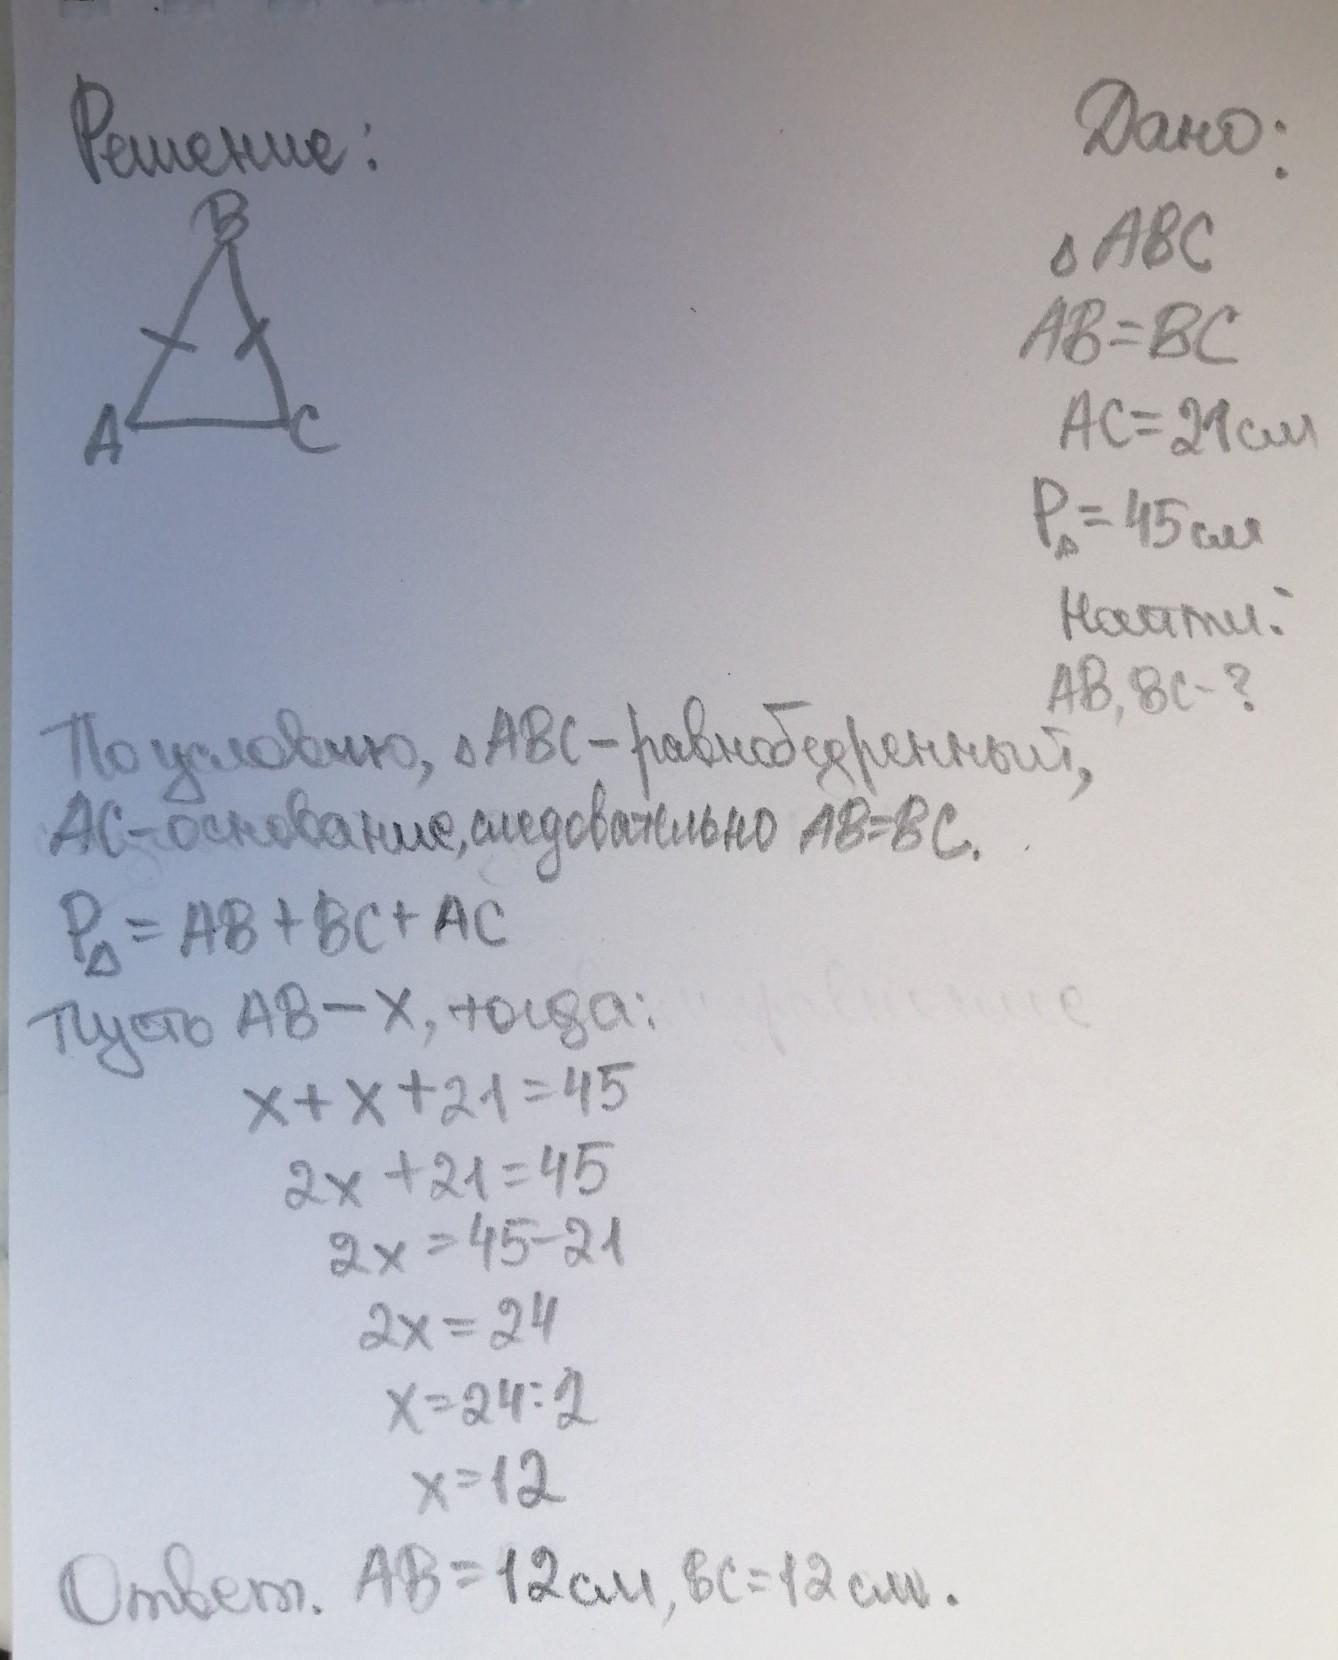 Решение:
B
A
C
Дано:
△ABC
AB=BC
AC=21см
P△=45см
Найти:
AB, BC-?
По условию, △ABC-равнобедренный,
AC-основание, следовательно AB=BC.
P△=AB+BC+AC
Пусть AB-x, тогда:
x+x+21=45
2x+21=45
2x=45-21
2x=24
x=24:2
x=12
Ответ. AB=12см, BC=12см.